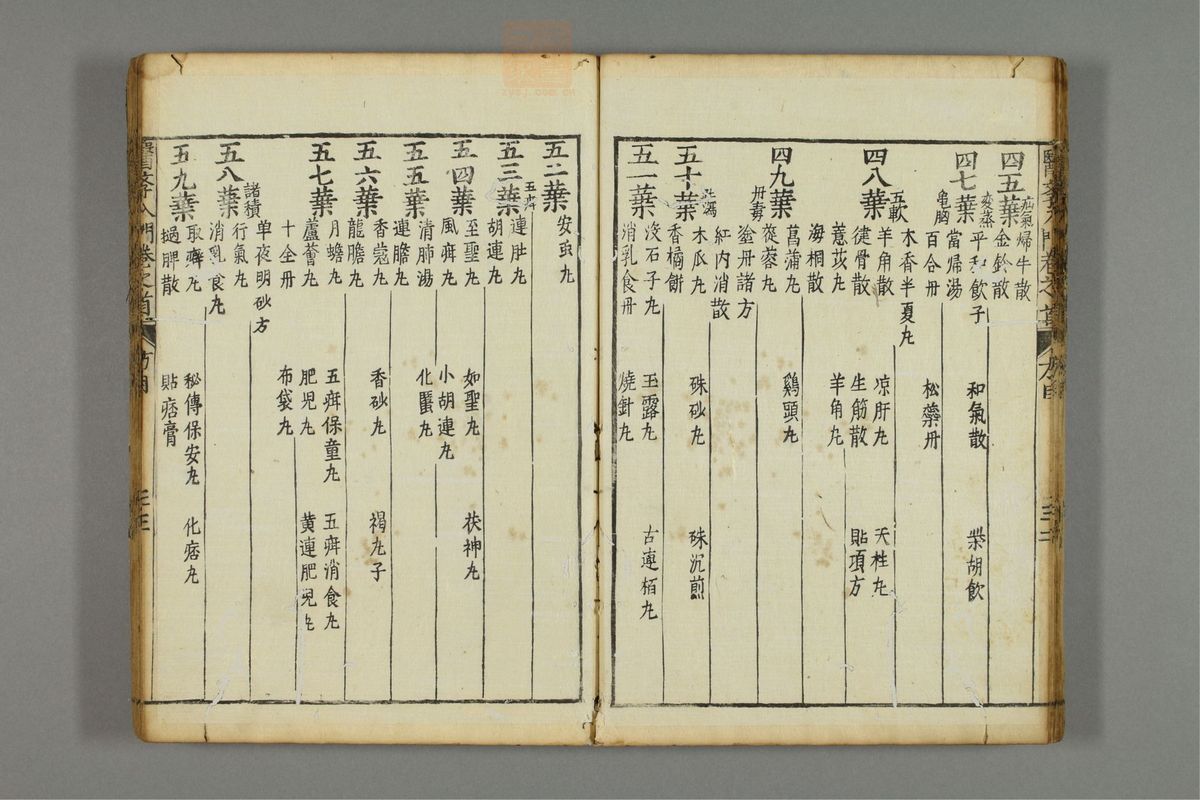 四五葉 疝氣 歸牛散
金鈴散
四七葉 变蒸 平和飲子 和氣散 柴胡飲
當歸湯
龟胸 百合丹 松蘂丹
木香半夏丸
四八葉 五軟 羊角散 凉肝丸 天柱丸
健骨散 生筋散 貼項方
薏苡丸 羊角丸
海桐散
四九葉 菖蒲丸 鷄頭丸
蓯蓉丸
丹毒 塗丹諸方
紅内消散
五十葉 木瓜丸 硃砂丸 硃沉煎
香橘餅
五一葉 没石子丸 玉露丸 古連栢丸
消乳食丹 燒針丸
五二葉 安虫丸
五三葉 五疳 連肚丸
胡連丸
五四葉 至聖丸 如聖丸 茯神丸
風疳丸 小胡連丸
五五葉 清肺湯 化䘌丸
連膽丸
五六葉 香蔻丸 香砂丸 褐丸子
龍膽丸
五七葉 月蟾丸 五疳保童丸 五疳消食丸
蘆薈丸 肥児丸 黄連肥児丸
十全丹 布袋丸
单夜明砂方
五八葉 諸積 行氣丸
消乳食丸
五九葉 取癖丸 秘傳保安丸 化痞丸
搥脾散 貼痞膏
醫
入門卷之首